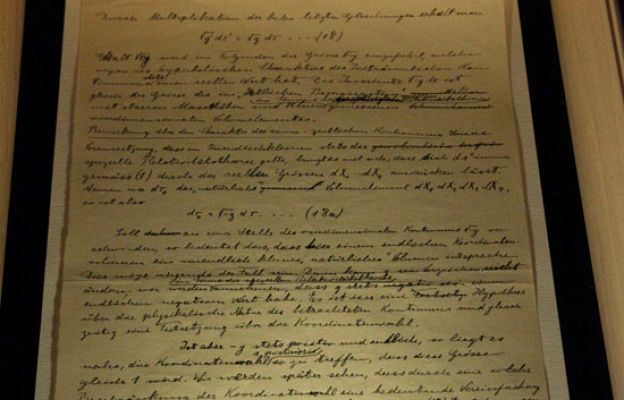 Durch Multiplikation der beiden letzten Gleichungen erhält man
√g' dτ' = √g dτ .... (18)
Statt √g wird im Folgenden die Grösse √-g eingeführt, welche
wegen des hyperbolischen Charakters des zeiträumlichen Kon-
tinuums stets reellen Wert hat. Die Invariante √-g dτ ist
gleich der Grösse des im "örtlichen Bezugssystem"
mit starren Massstäben und Uhren gemessenen
vierdimensionalen Volumelementes.
Bemerkung über den Charakter des raum-zeitlichen Kontinuums. Unsere
Voraussetzung, dass im Unendlichkleinen stets die
spezielle Relativitätstheorie gelte, bringt es mit sich, dass sich ds² immer
gemäss (1) durch die reellen Grössen dX₁..dX₄ ausdrücken lässt.
Nennen wir dτ₀ das "natürliche" Volumelement dX₁ dX₂ dX₃ dX₄,
so ist also
dτ₀ = √-g dτ .... (18a)
Soll an einer Stelle des vierdimensionalen Kontinuums √-g ver-
schwinden, so bedeutet dies, dass hier einem endlichen Koordinaten-
volumen ein unendlich kleines "natürliches" Volumen entspreche.
Dies möge nirgends der Fall sein. Dann kann g sein Vorzeichen nicht
im Sinne der speziellen Relativitätstheorie
ändern, wir werden annehmen, dass g stets einen
endlichen negativen Wert habe. Es ist dies eine Hypothese
über die physikalische Natur des betrachteten Kontinuums und gleich-
zeitig eine Festsetzung über die Koordinatenwahl.
Ist aber -g stets positiv und endlich, so liegt es
a posteriori
nahe, die Koordinatenwahl so zu treffen, dass diese Grösse
gleich 1 wird. Wir werden später sehen, dass durch eine solche
Beschränkung der Koordinatenwahl eine bedeutende Vereinfachung